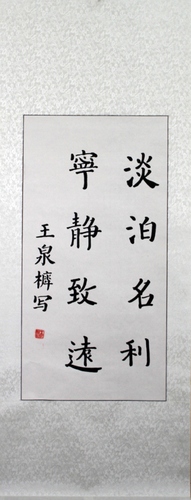 淡泊名利
寧静致遠
王泉樨写